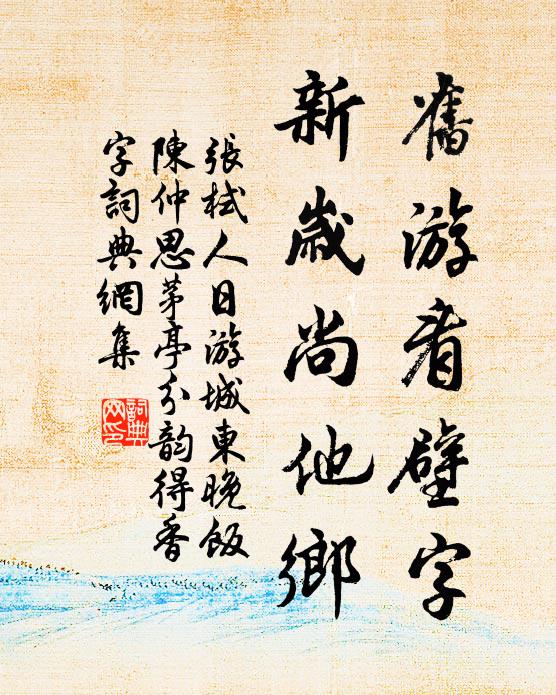 舊游看壁字
新歲尚他鄉
張栻人日游城東晚飯
陳仲思茅亭分韵得香
字詞典網集
詞典
网印